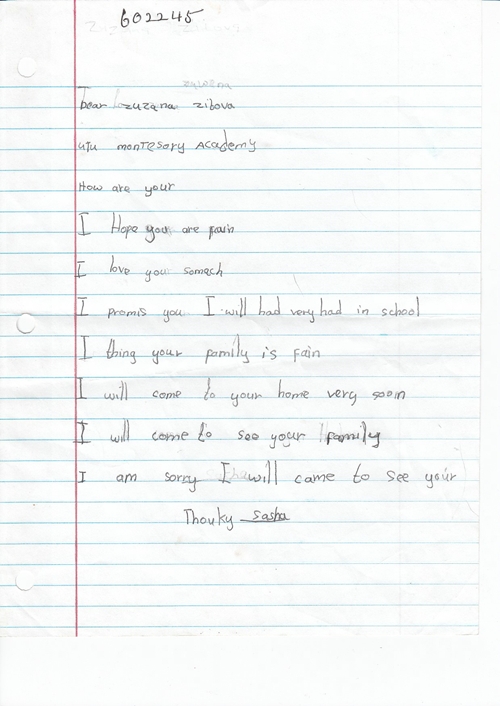 602245
Dear zuzana zibova
uju monTesory Academy
How are your
I Hope you are pain
I love you somach
I promis you I will had very had in school
I thing your pamily is Fain
I will come to your home very soon
I will come to see your pamily
I am sorry I will came to see your
Thouky sasha